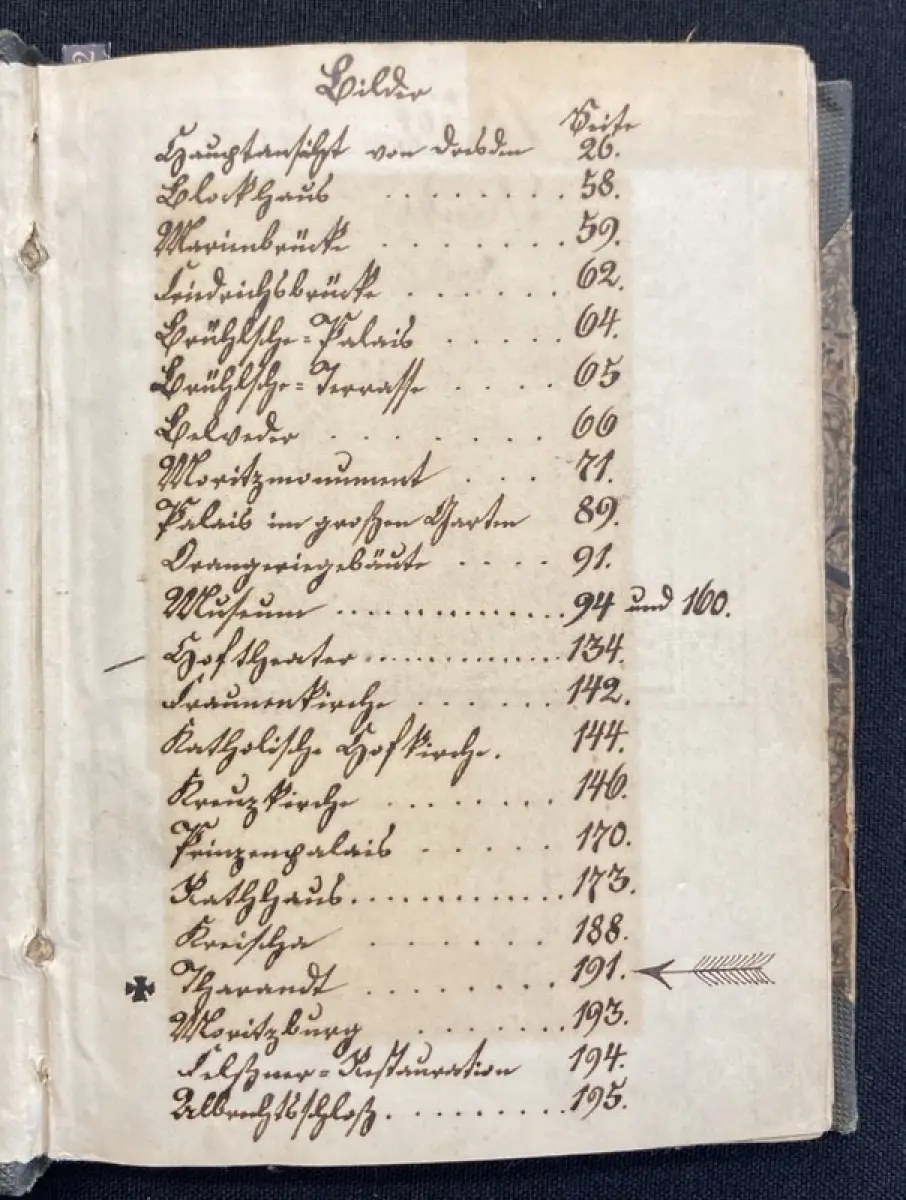 Bilder
Seite
Hauptansicht von Dresden 26.
Blockhaus ........ 58.
Marienbrücke ....... 59.
Friedrichsbrücke ...... 62.
Brühlsche=Palais ..... 64.
Brühlsche=Terrasse .... 65
Belveder ........ 66
Moritzmonument ... 71.
Palais im großen Garten 89.
Orangeriegebäute .... 91.
Museum ............ 94 und 160.
Hoftheater ............ 134.
Fraunenkirche ...... 142.
Katholische Hofkirche. 144.
Kreuzkirche ....... 146.
Prinzenpalais ..... 170.
Rathhaus ............ 173.
Kreischa ....... 188.
Tharandt ........ 191.
Moritzburg ...... 193.
Restauration 194.
Albrechtsschloß ......... 195.